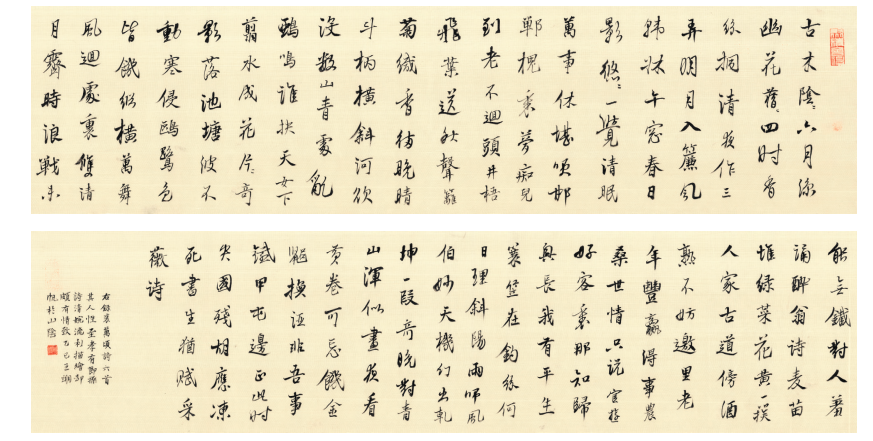 古木陰〻六月涼
幽花藉〻四時香
絲桐清夜作三
弄明月入簾風
沐午窓春日
影悠〻一覺清眠
萬事休堪笑邯
鄲槐裏夢痴兒
到老不迴頭井梧
飛葉送秋聲籬
菊緘香待晚晴
斗柄橫斜河欲
沒數山青處亂
鴉鳴誰挾天女下
翦水成花片〻奇
影落池塘波不
動寒侵鷗鷺色
皆餓縱橫萬舞
風迴處裏雙清
月霽時浪戰未
能無鐵對人羞
誦醉翁詩麦苗
堆緑菜花黃一
人家古道傍酒
熟不妨邀里老
年豐贏得事農
桑世情只說官游
好客裏那知歸
興長我有平生
蓑笠在釣絲何
日理斜陽雨叩風
伯妙天機幻出乾
坤一段奇晚對青
山渾似畫夜看
黃卷可忘饑金
貂換酒非吾事
鐵甲屯邊正此时
失國殘胡應凍
死書生猶賦采
薇詩
右錄裘萬頃詩六首
其人性至孝有節操
詩清婉流利描繪却
頗有情致乙巳王湖
帆於山陰